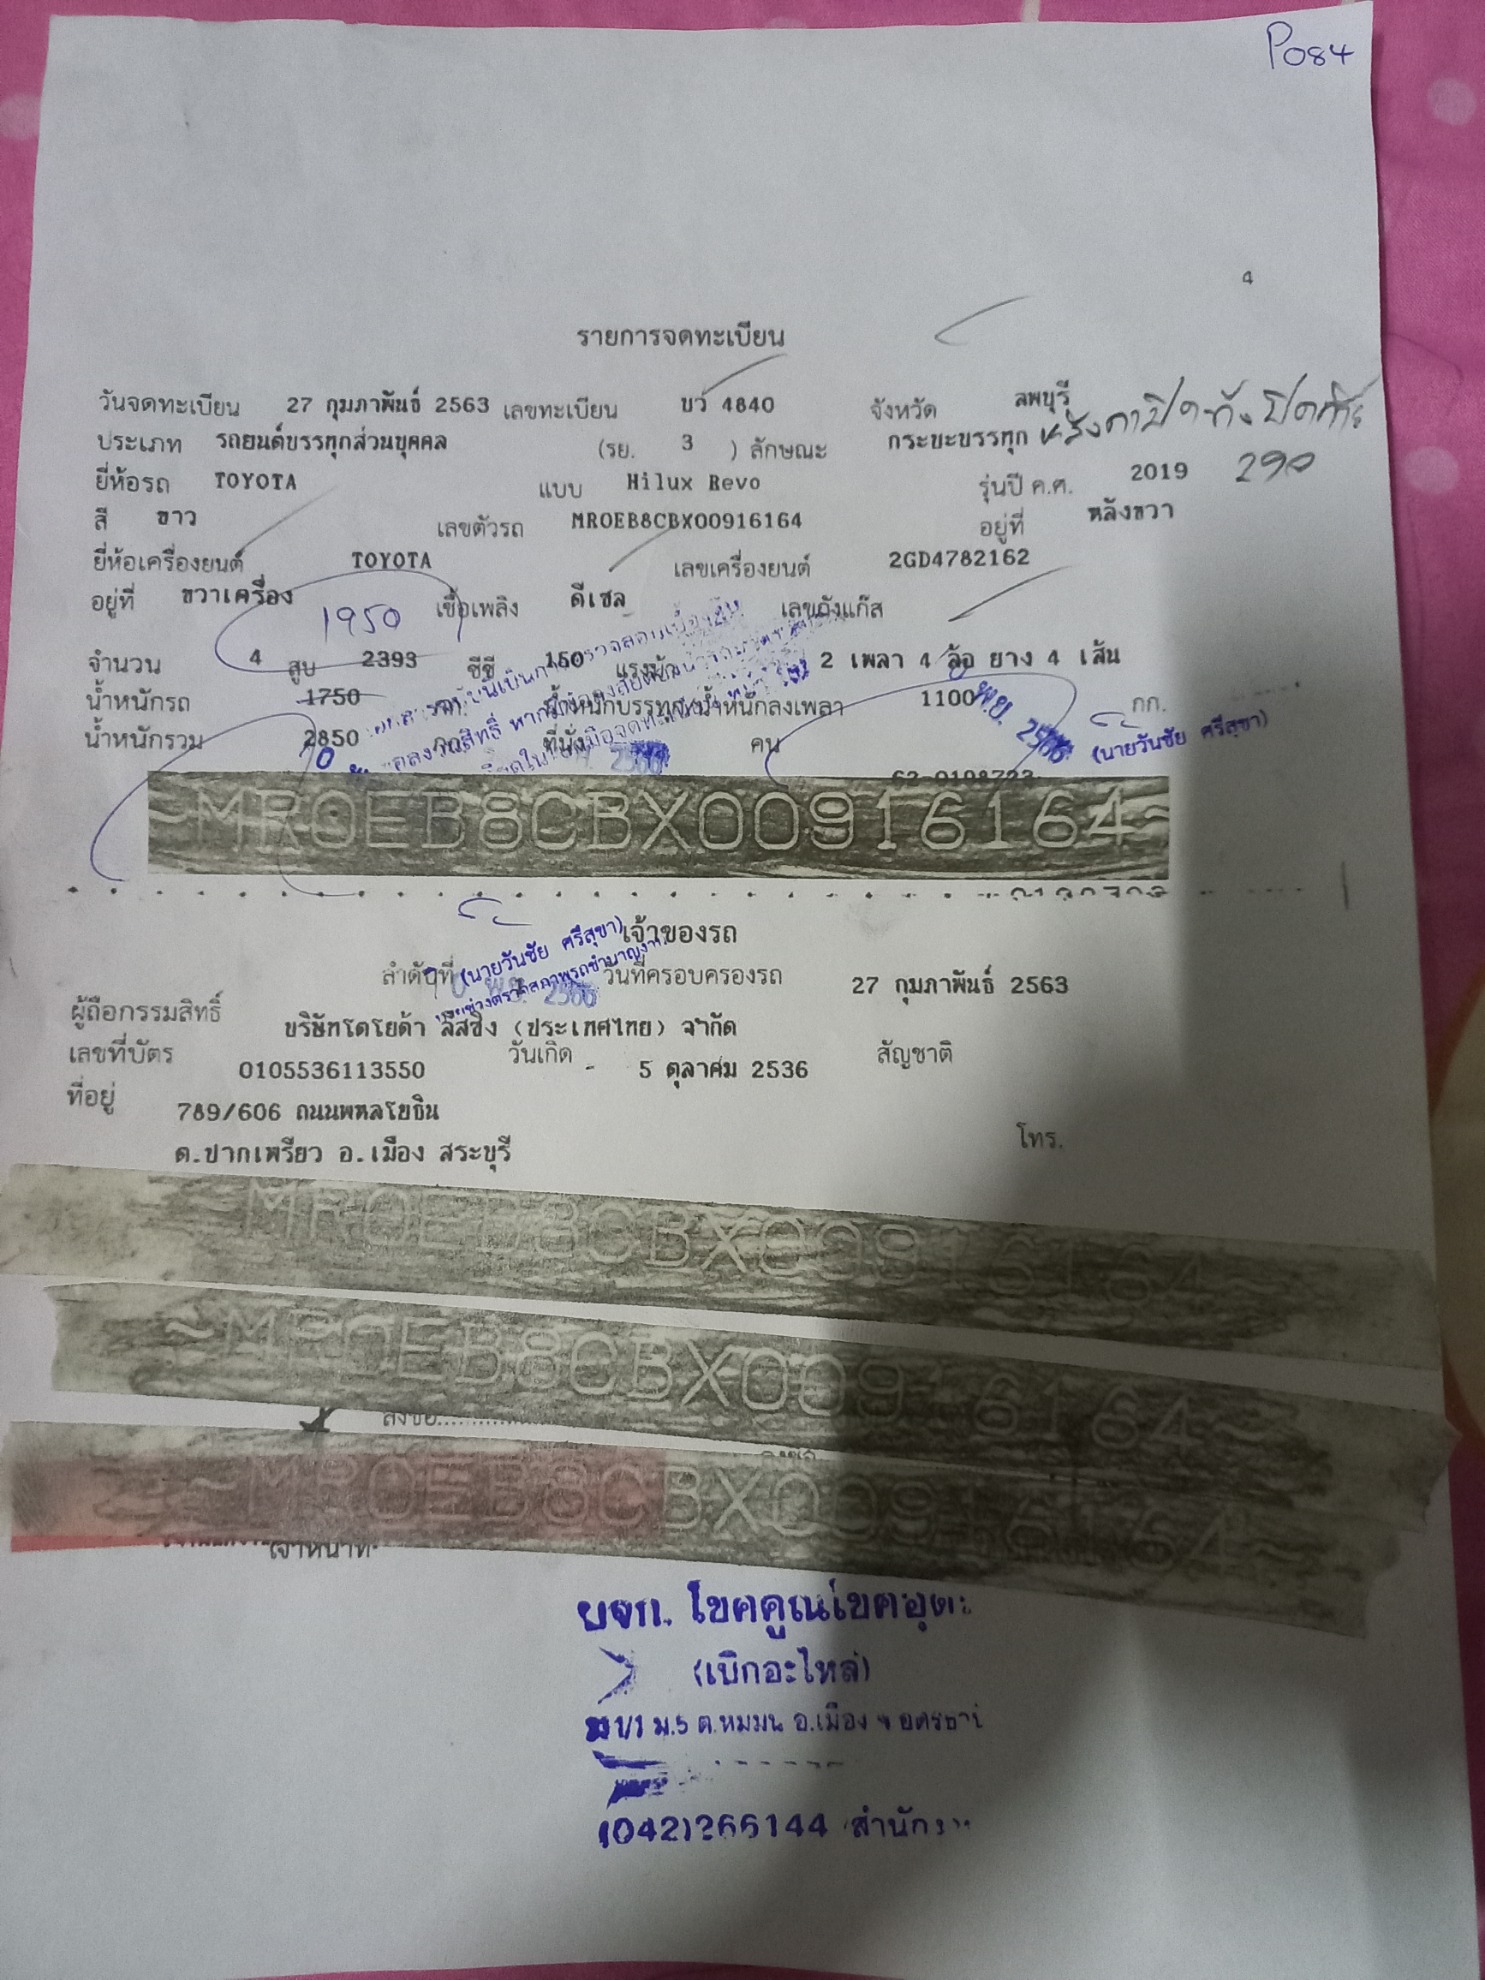 P084
4
รายการจดทะเบียน
วันจดทะเบียน 27 กุมภาพันธ์ 2563 เลขทะเบียน บว 4840 จังหวัด ลพบุรี
ประเภท รถยนต์บรรทุกส่วนบุคคล (รย. 3 ) ลักษณะ กระบะบรรทุก หลังคาปิด
ยี่ห้อรถ TOYOTA แบบ Hilux Revo รุ่นปี ค.ศ. 2019 290
สี ขาว เลขตัวรถ MR0EB8CBX00916164 อยู่ที่ หลังขวา
ยี่ห้อเครื่องยนต์ TOYOTA เลขเครื่องยนต์ 2GD4782162
อยู่ที่ ขวาเครื่อง เชื้อเพลิง ดีเซล เลขถังแก๊ส
1950
จำนวน 4 สูบ 2393 ซีซี 150 แรงม้า 2 เพลา 4 ล้อ ยาง 4 เส้น
น้ำหนักรถ 1750 น้ำหนักบรรทุก/น้ำหนักลงเพลา 1100 กก.
น้ำหนักรวม 2850 กก. ที่นั่ง คน
พ.ย. 2566
(นายวันชัย ศรีสุขา)
~MR0EB8CBX00916164~
เจ้าของรถ
(นายวันชัย ศรีสุขา)
ลำดับที่ วันที่ครอบครองรถ 27 กุมภาพันธ์ 2563
พ.ย. 2566
ผู้ถือกรรมสิทธิ์ บริษัทโตโยต้า ลีสซิ่ง (ประเทศไทย) จำกัด
เลขที่บัตร 0105536113550 วันเกิด - 5 ตุลาคม 2536 สัญชาติ
ที่อยู่ 789/606 ถนนพหลโยธิน
ต.ปากเพรียว อ.เมือง สระบุรี โทร.
~MR0EB8CBX00916164~
~MR0EB8CBX00916164~
ลงชื่อ
~MR0EB8CBX00916164~
เจ้าหน้าที่
หจก. โชคคูณโชคอุดร
(เบิกอะไหล่)
ม.5 ต.หมูม่น อ.เมือง จ.อุดรธานี
(042)266144 (สำนักงาน